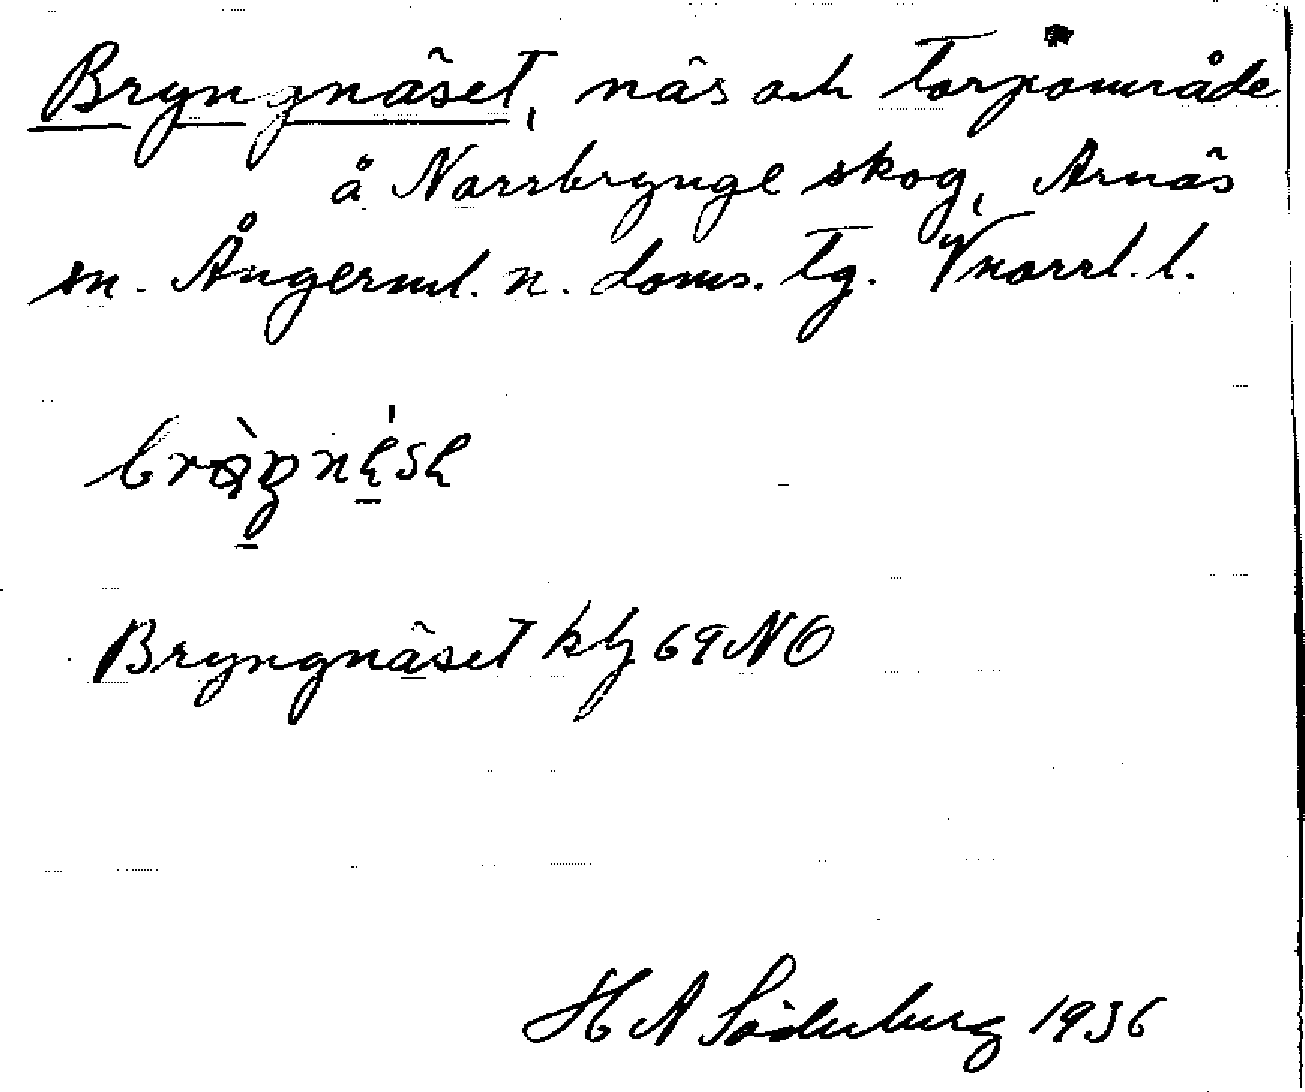 Bryngnäset, näs och torpområde
å Norrbrynge skog, Arnäs
sn. Ångerml. n. doms. tg. Vnorrl. l.
Bryngnäset kbl 69 NO
H A Söderberg 1936